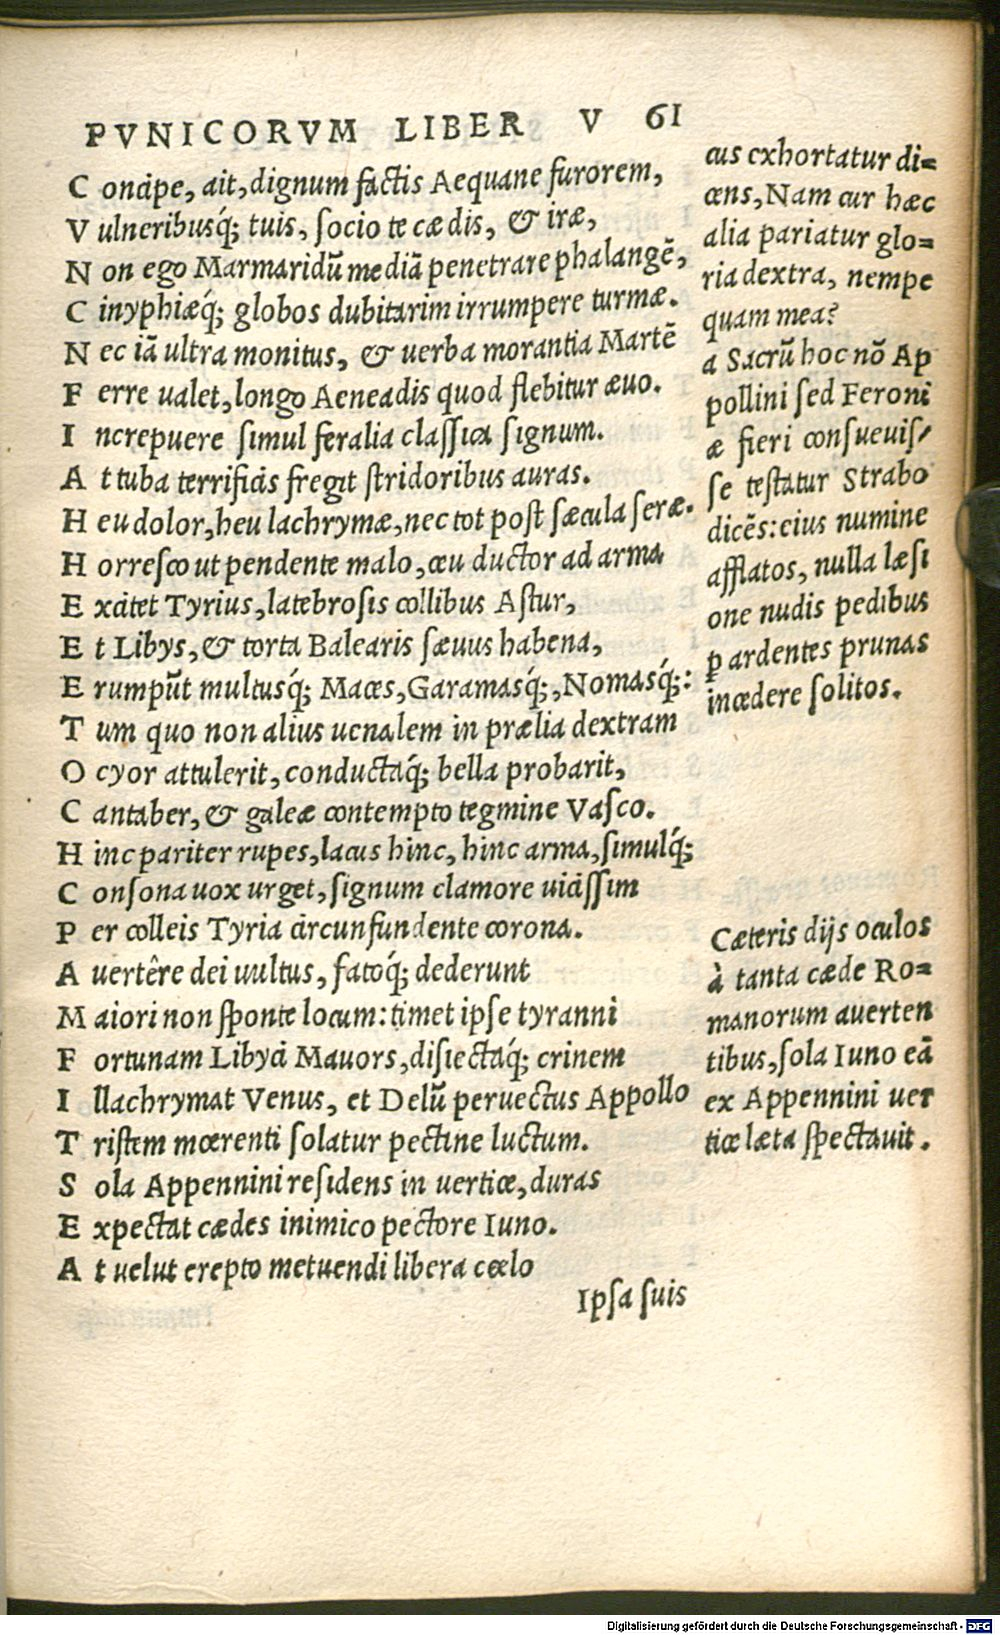 PVNICORVM LIBER V 61
C oncipe, ait, dignum factis Aequane furorem,
V ulneribusq́; tuis, socio te cædis, & iræ,
N on ego Marmaridũ mediã penetrare phalangẽ,
C inyphiæq́; globos dubitarim irrumpere turmæ.
N ec iã ultra monitus, & uerba morantia Martẽ
F erre ualet, longo Aeneadis quod flebitur æuo.
I ncrepuere simul feralia classica signum.
A t tuba terrificis fregit stridoribus auras.
H eu dolor, heu lachrymæ, nec tot post sæcula seræ.
H orresco ut pendente malo, ceu ductor ad arma
E xcitet Tyrius, latebrosis collibus Astur,
E t Libys, & torta Balearis sæuus habena,
E rumpũt multusq́; Maces, Garamasq́;, Nomasq́;:
T um quo non alius uenalem in prælia dextram
O cyor attulerit, conductaq́; bella probarit,
C antaber, & galeæ contempto tegmine Vasco.
H inc pariter rupes, lacus hinc, hinc arma, simulq́;
C onsona uox urget, signum clamore uicissim
P er colleis Tyria circunfundente corona.
A uertêre dei uultus, fatoq́; dederunt
M aiori non sponte locum: timet ipse tyranni
F ortunam Libyci Mauors, disiectaq́; crinem
I llachrymat Venus, et Delũ peruectus Appollo
T ristem mœrenti solatur pectine luctum.
S ola Appennini residens in uertice, duras
E xpectat cædes inimico pectore Iuno.
A t uelut erepto metuendi libera cœlo
Ipsa suis
cus exhortatur di=
cens, Nam cur hæc
alia pariatur glo=
ria dextra, nempe
quam mea?
a Sacrũ hoc nõ Ap
pollini sed Feroni
æ fieri consueuis/
se testatur Strabo
dicẽs: eius numine
afflatos, nulla læsi
one nudis pedibus
ꝑ ardentes prunas
incedere solitos.
Cæteris dijs oculos
à tanta cæde Ro=
manorum auerten
tibus, sola Iuno eã
ex Appennini uer
tice læta spectauit.
Digitalisierung gefördert durch die Deutsche Forschungsgemeinschaft - DFG